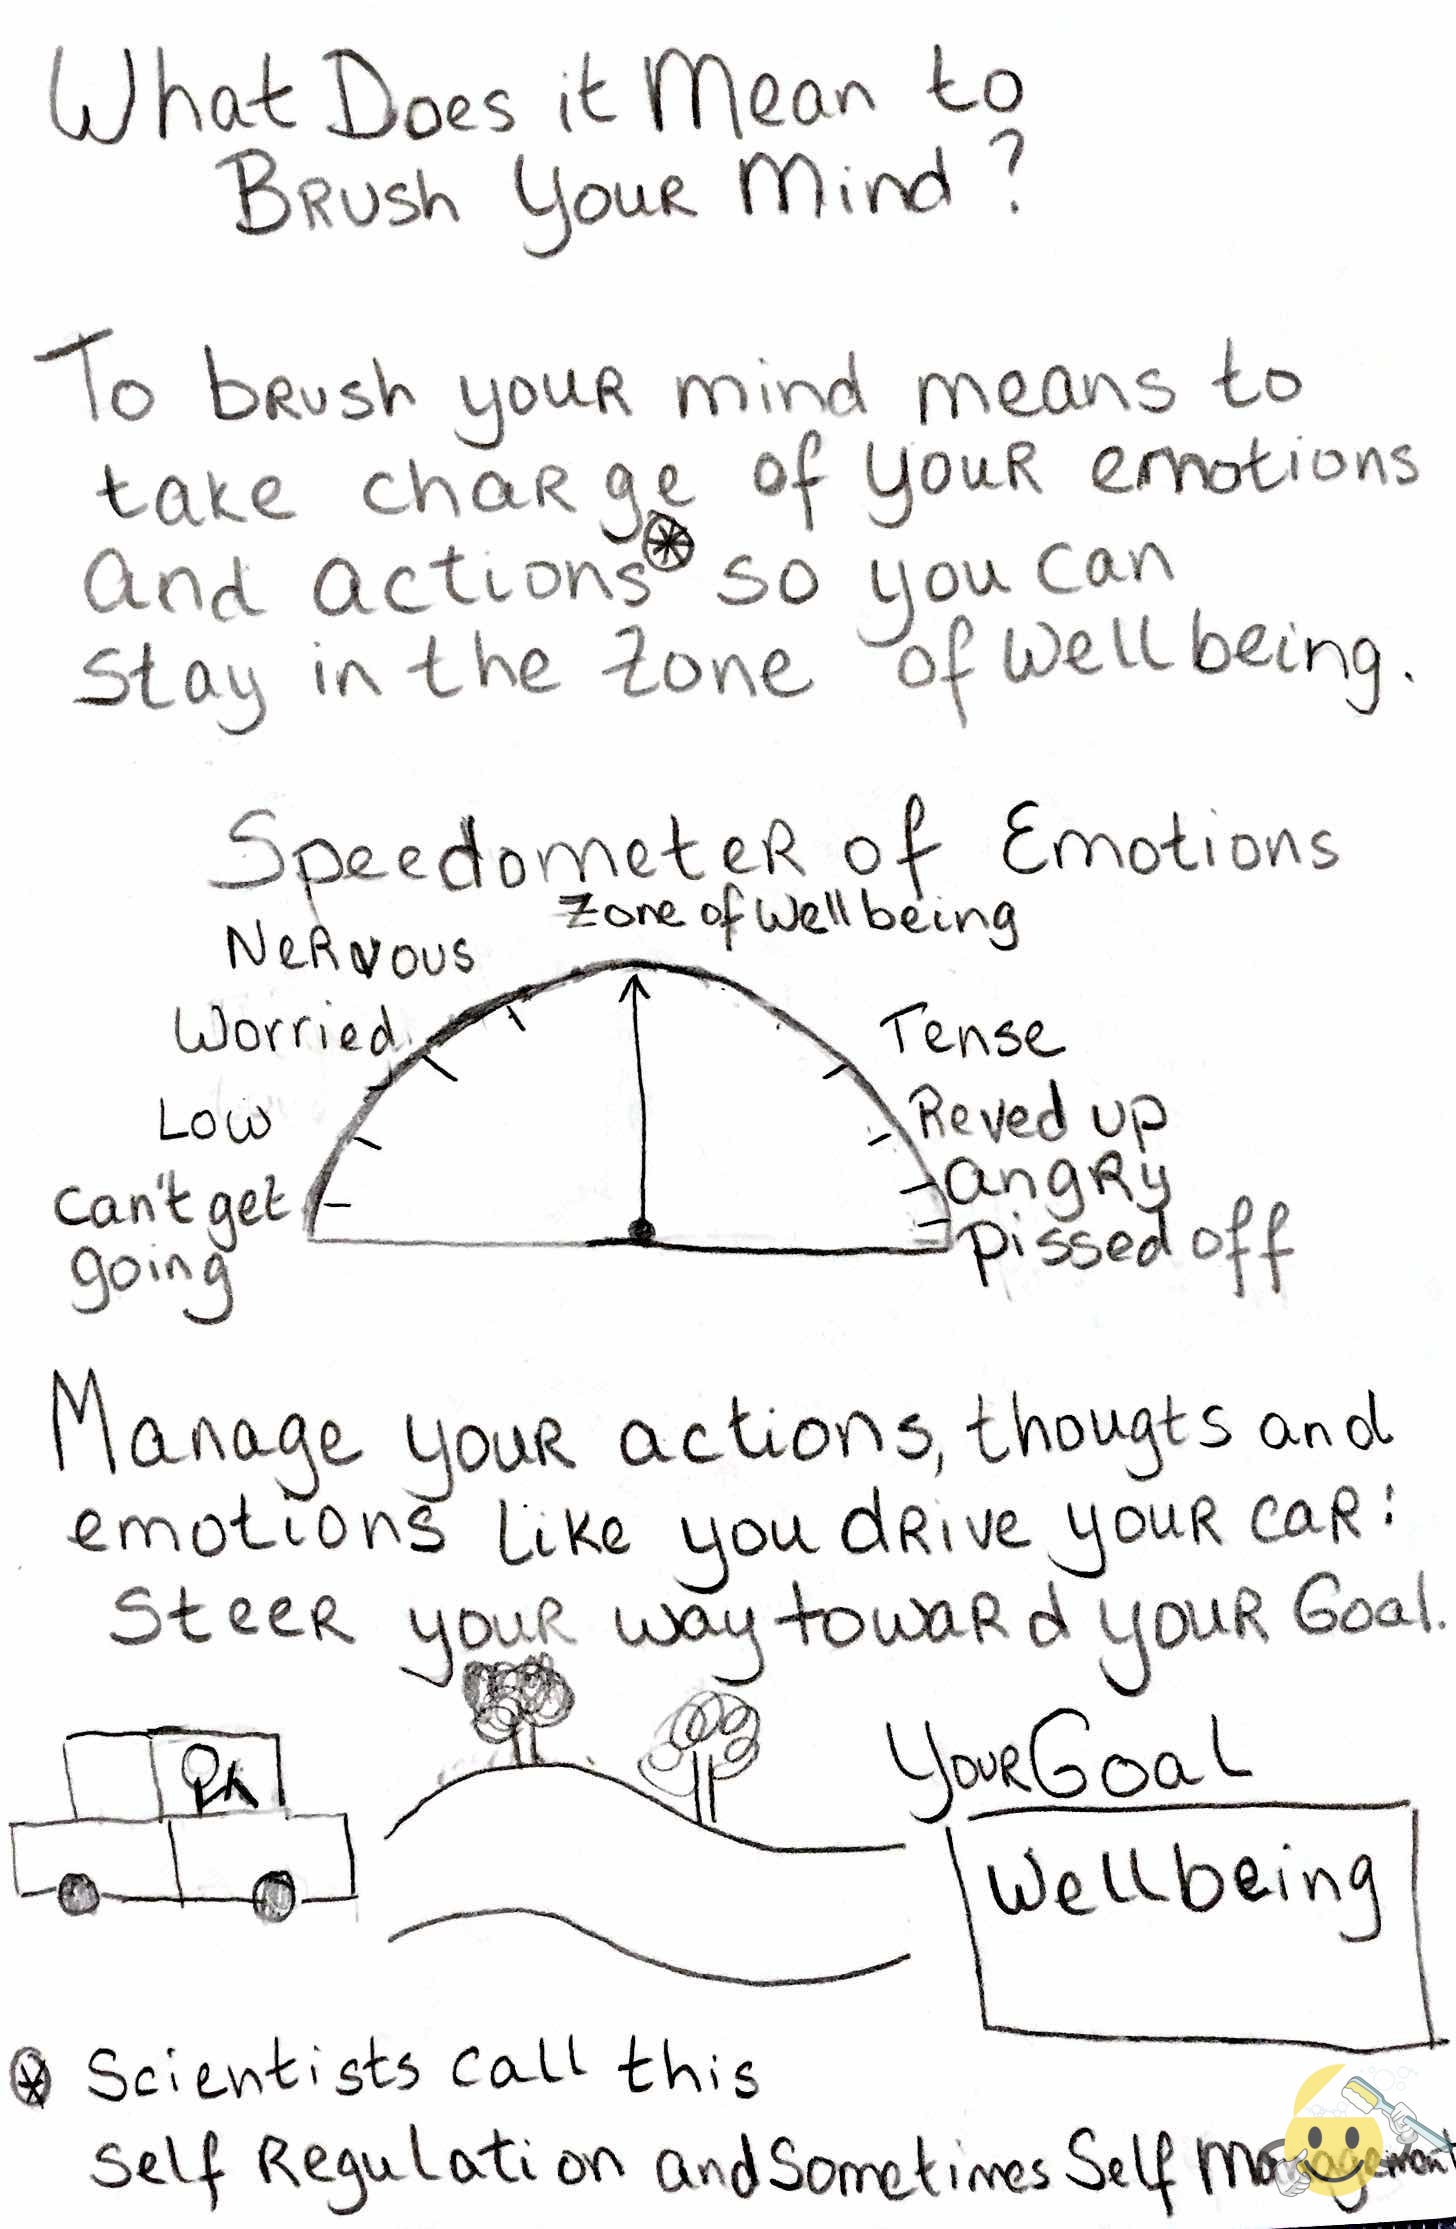 What Does it Mean to
Brush Your Mind?
To brush your mind means to
take charge of your emotions
and actions⊛ so you can
stay in the zone of wellbeing.
Speedometer of Emotions
Zone of Wellbeing
Nervous
Worried
Low
Can't get
going
Tense
Reved up
angry
pissed off
Manage your actions, thougts and
emotions like you drive your car:
steer your way toward your Goal.
Your Goal
Wellbeing
⊛ Scientists call this
self Regulation and Sometimes Self Management